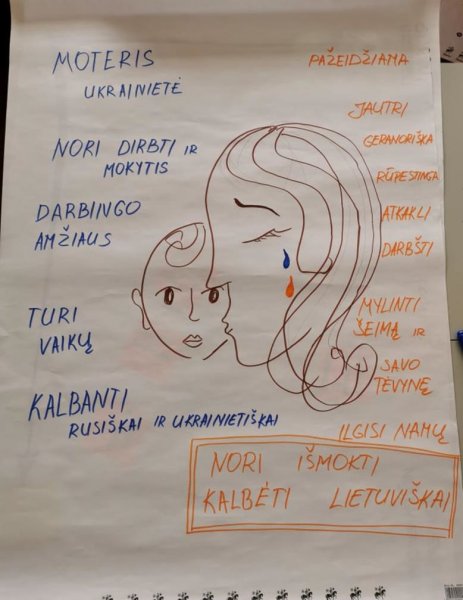 MOTERIS
UKRAINIETĖ
NORI DIRBTI IR
MOKYTIS
DARBINGO
AMŽIAUS
TURI
VAIKŲ
KALBANTI
RUSIŠKAI IR UKRAINIETIŠKAI
PAŽEIDŽIAMA
JAUTRI
GERANORIŠKA
RŪPESTINGA
ATKAKLI
DARBŠTI
MYLINTI
ŠEIMĄ IR
SAVO
TĖVYNĘ
ILGISI NAMŲ
NORI IŠMOKTI
KALBĖTI LIETUVIŠKAI